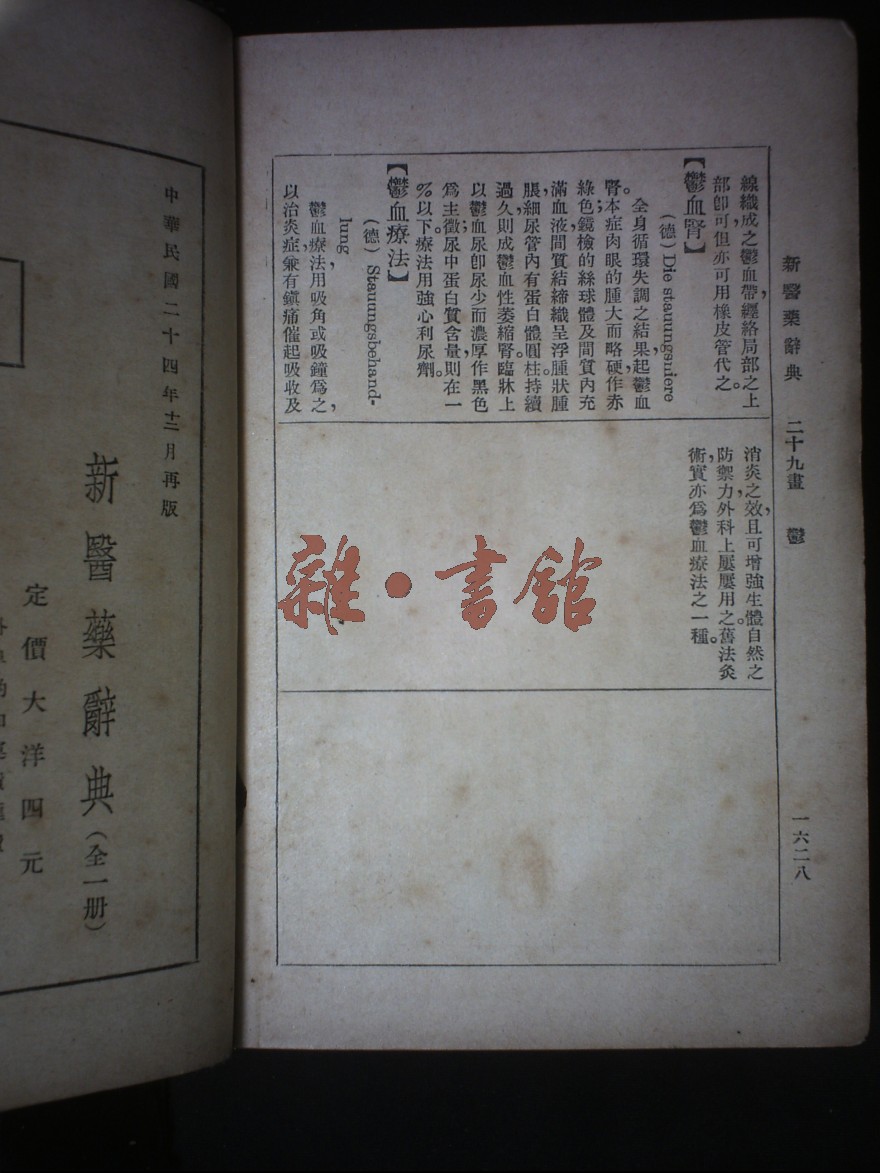 新醫藥辭典　二十九畫　鬱　一六二八
線織成之鬱血帶，經絡局部之上
部卽可，但亦可用橡皮管代之。
【鬱血腎】
（德）Die stauungsniere
全身循環失調之結果，起鬱血
腎。本症肉眼的腫大而略硬，作赤
綠色；鏡檢的絲球體及間質內充
滿血液，間質結締織呈浮腫狀腫
脹，細尿管內有蛋白體圓柱，持續
過久，則成鬱血性萎縮腎。臨牀上
以鬱血尿，卽尿少而濃厚，作黑色
爲主徵；尿中蛋白質含量則在一
%以下，療法用強心利尿劑。
【鬱血療法】
（德）Stauungsbehand-
lung
鬱血療法用吸角或吸鐘爲之，
以治炎症，兼有鎭痛催起吸收及
消炎之效，且可增強生體自然之
防禦力，外科上屢屢用之。舊法灸
術，實亦爲鬱血療法之一種。
雜·書館
中華民國二十四年十二月再版
新醫藥辭典（全一册）
定價大洋四元